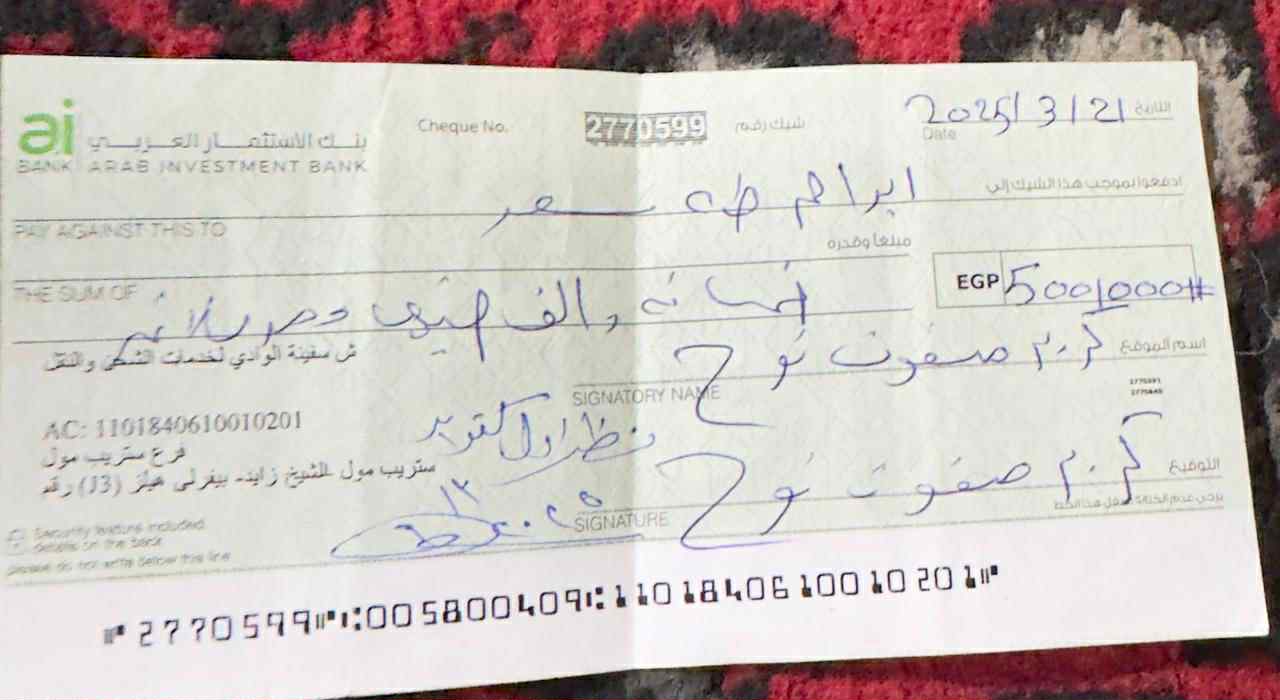 ai بنك الاستثمار العربي
BANK ARAB INVESTMENT BANK
Cheque No. 2770599 شيك رقم
2025/3/21 التاريخ
Date
ادفعوا بموجب هذا الشيك إلى ابراهيم طه
PAY AGAINST THIS TO
مبلغا وقدره
THE SUM OF
خمسمائه والف جنيها
EGP 500/000#
ش سفينة الوادي لخدمات الشحن والنقل
اسم الموقع كريم صفوت نوح
SIGNATORY NAME
2770591
2770640
AC: 1101840610010201
فرع ستريب مول
ستريب مول الشيخ زايد- بيفرلى هيلز (J3) رقم
نظر اول اكتوبر
التوقيع كريم صفوت نوح
SIGNATURE
Security feature included
details on the back
please do not write below this line
2770599 005800409 1101840610010201